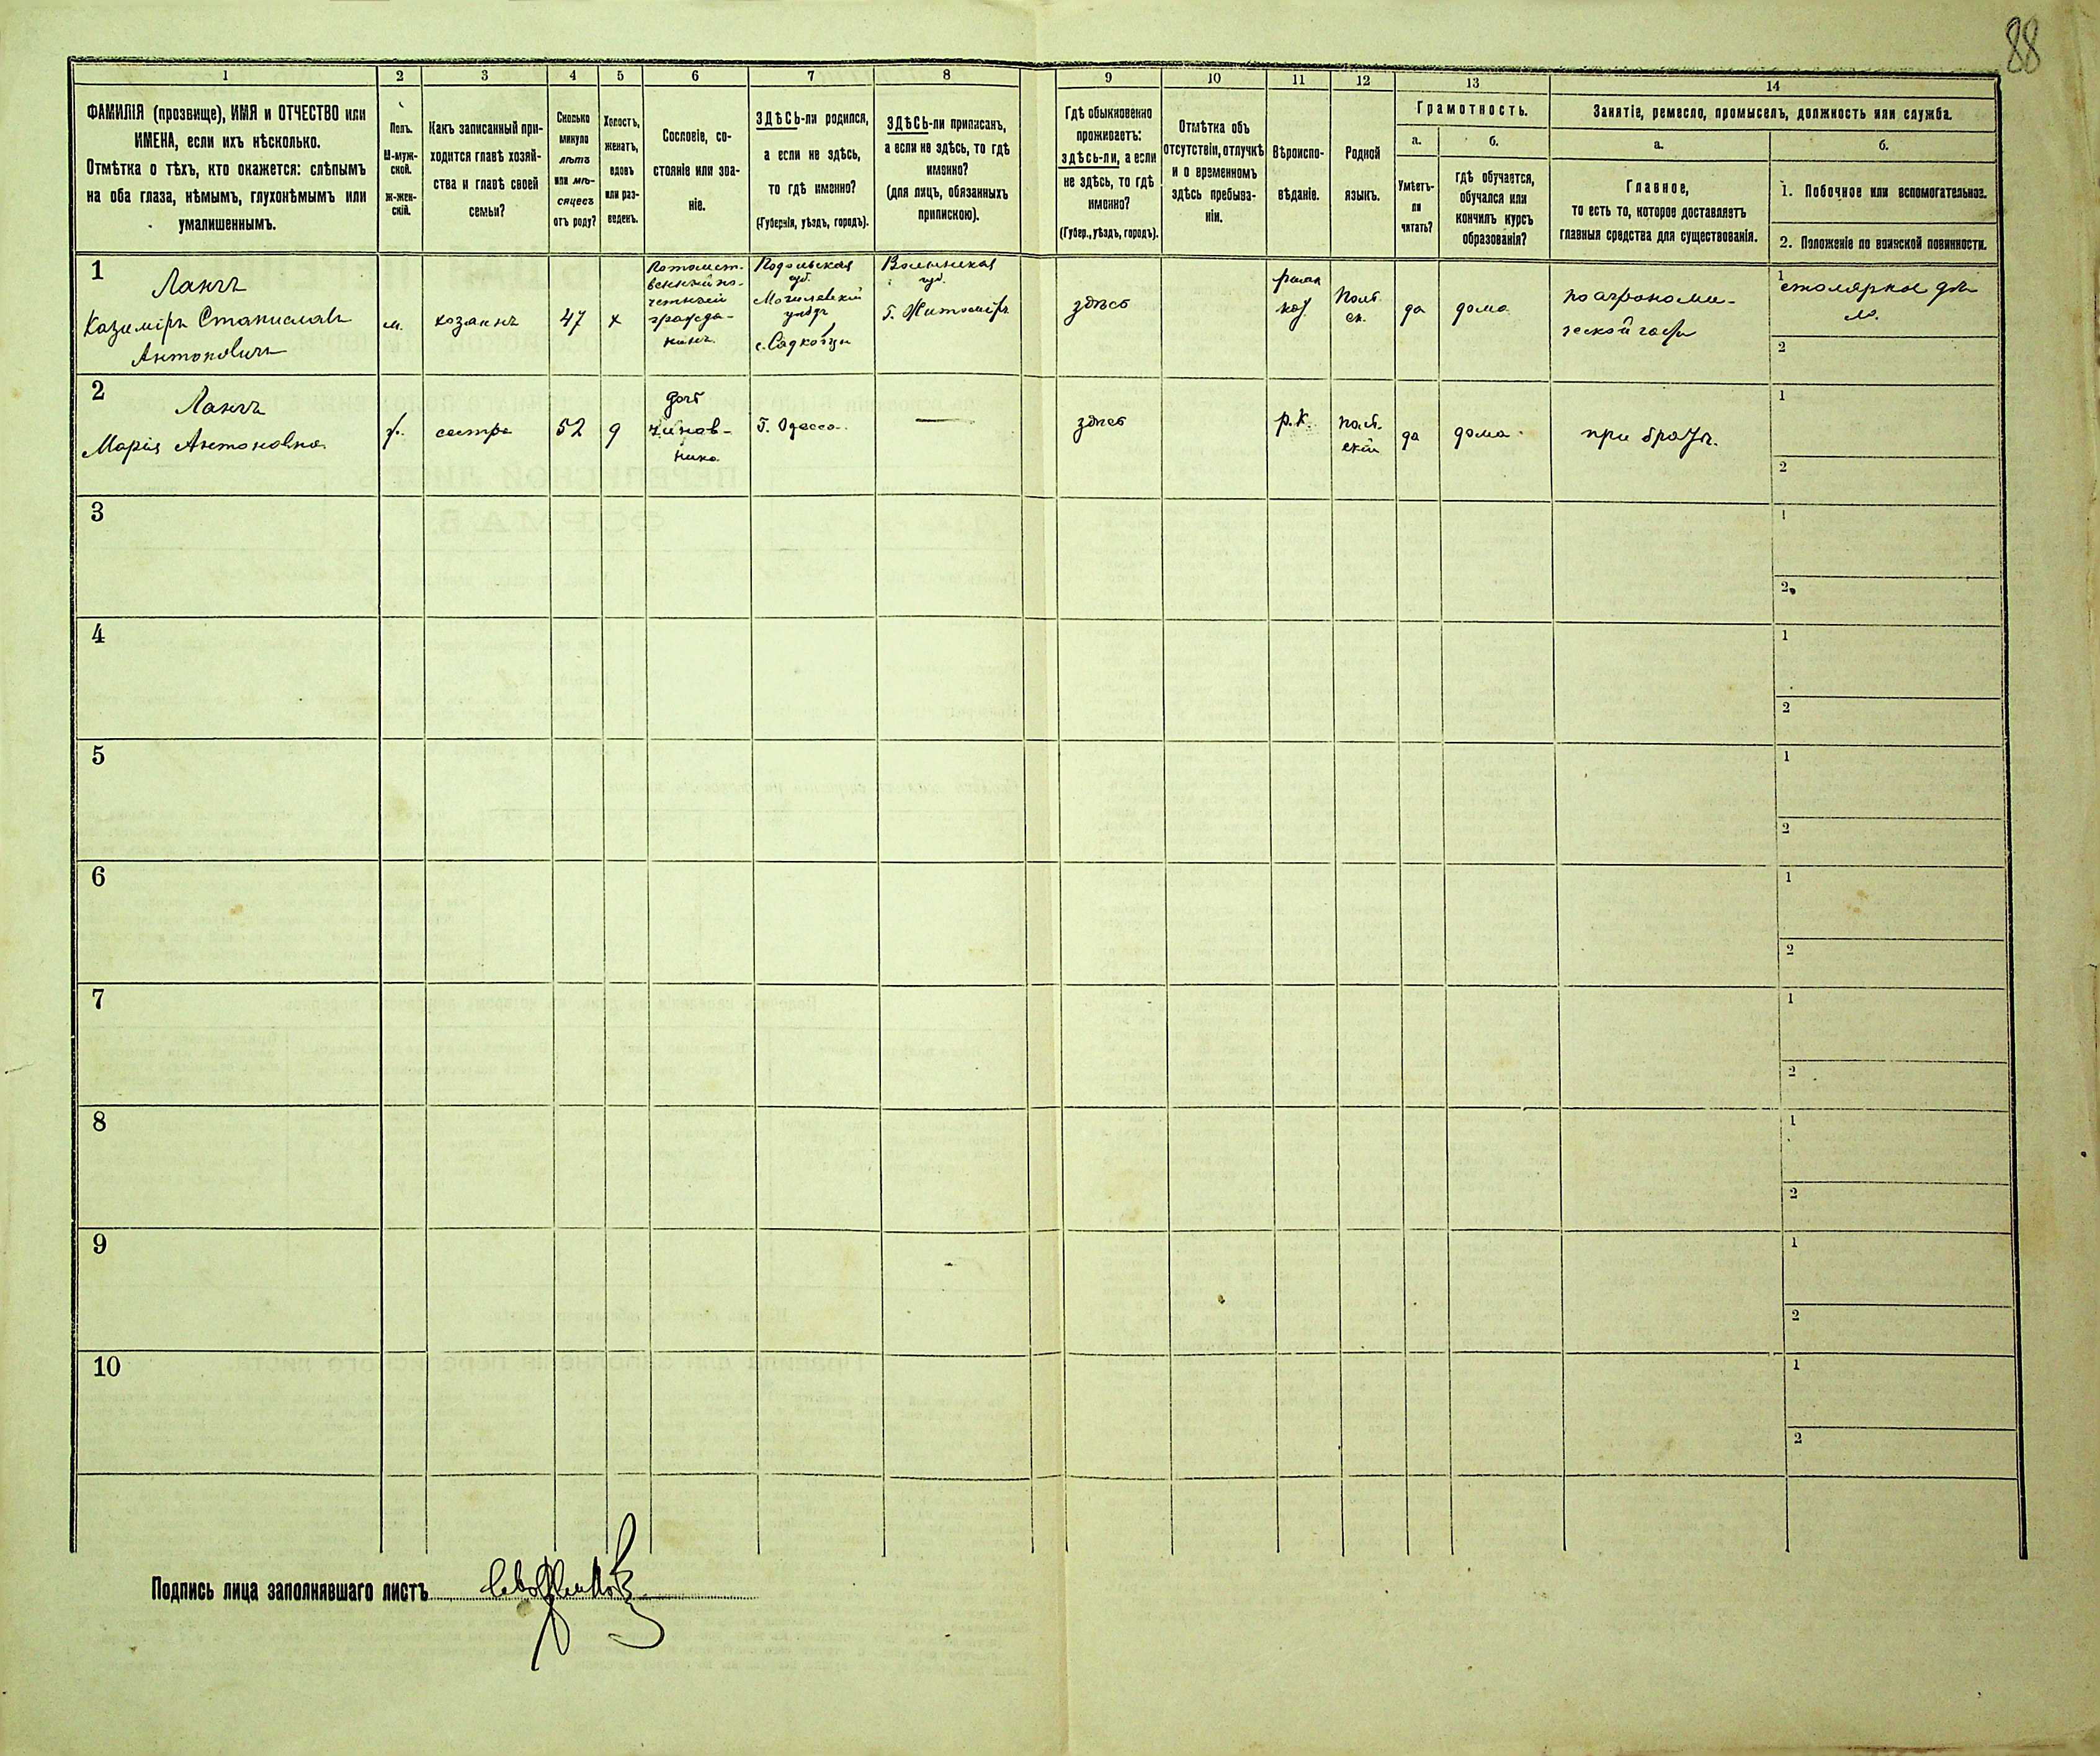 88
1 2 3 4 5 6 7 8 9 10 11 12 13 14
ФАМИЛІЯ (прозвище), ИМЯ и ОТЧЕСТВО или
ИМЕНА, если ихъ нѣсколько.
Отмѣтка о тѣхъ, кто окажется: слѣпымъ
на оба глаза, нѣмымъ, глухонѣмымъ или
умалишеннымъ.
Полъ.
М-муж-
ской.
Ж-жен-
скій.
Какъ записанный при-
ходится главѣ хозяй-
ства и главѣ своей
семьи?
Сколько
минуло
лѣтъ
или мѣ-
сяцевъ
отъ роду?
Холостъ,
женатъ,
вдовъ
или раз-
веденъ.
Сословіе, со-
стояніе или зва-
ніе.
ЗДѢСЬ-ли родился,
а если не здѣсь,
то гдѣ именно?
(Губернія, уѣздъ, городъ).
ЗДѢСЬ-ли приписанъ,
а если не здѣсь, то гдѣ
именно?
(для лицъ, обязанныхъ
припискою).
Гдѣ обыкновенно
проживаетъ:
здѣсь-ли, а если
не здѣсь, то гдѣ
именно?
(Губер., уѣздъ, городъ).
Отмѣтка объ
отсутствіи, отлучкѣ
и о временномъ
здѣсь пребыва-
ніи.
Вѣроиспо-
вѣданіе.
Родной
языкъ.
Грамотность.
а.
Умѣетъ-
ли
читать?
б.
гдѣ обучается,
обучался или
кончилъ курсъ
образованія?
Занятіе, ремесло, промыселъ, должность или служба.
а.
Главное,
то есть то, которое доставляетъ
главныя средства для существованія.
б.
1. Побочное или вспомогательное.
2. Положеніе по воинской повинности.
1
Лангъ
Казиміръ Станиславъ
Антоновичъ
м.
хозяинъ
47
х
Потомст-
венный по-
четный
гражда-
нинъ.
Подольская
губ.
Могилевскій
уѣздъ
с. Садковцы
Волынская
губ.
г. Житоміръ
здѣсь
римк
кат
Поль
ск.
да
дома
по агрономи-
ческой части
1
столярное дѣ
ло.
2
2
Лангъ
Марія Антоновна
ж.
сестра
52
д
дочь
чинов-
ника
г. Одесса.
—
здѣсь
р.к.
поль
скій
да
дома
при братѣ.
1
2
3
1
2
4
1
2
5
1
2
6
1
2
7
1
2
8
1
2
9
1
2
10
1
2
Подпись лица заполнявшаго листъ